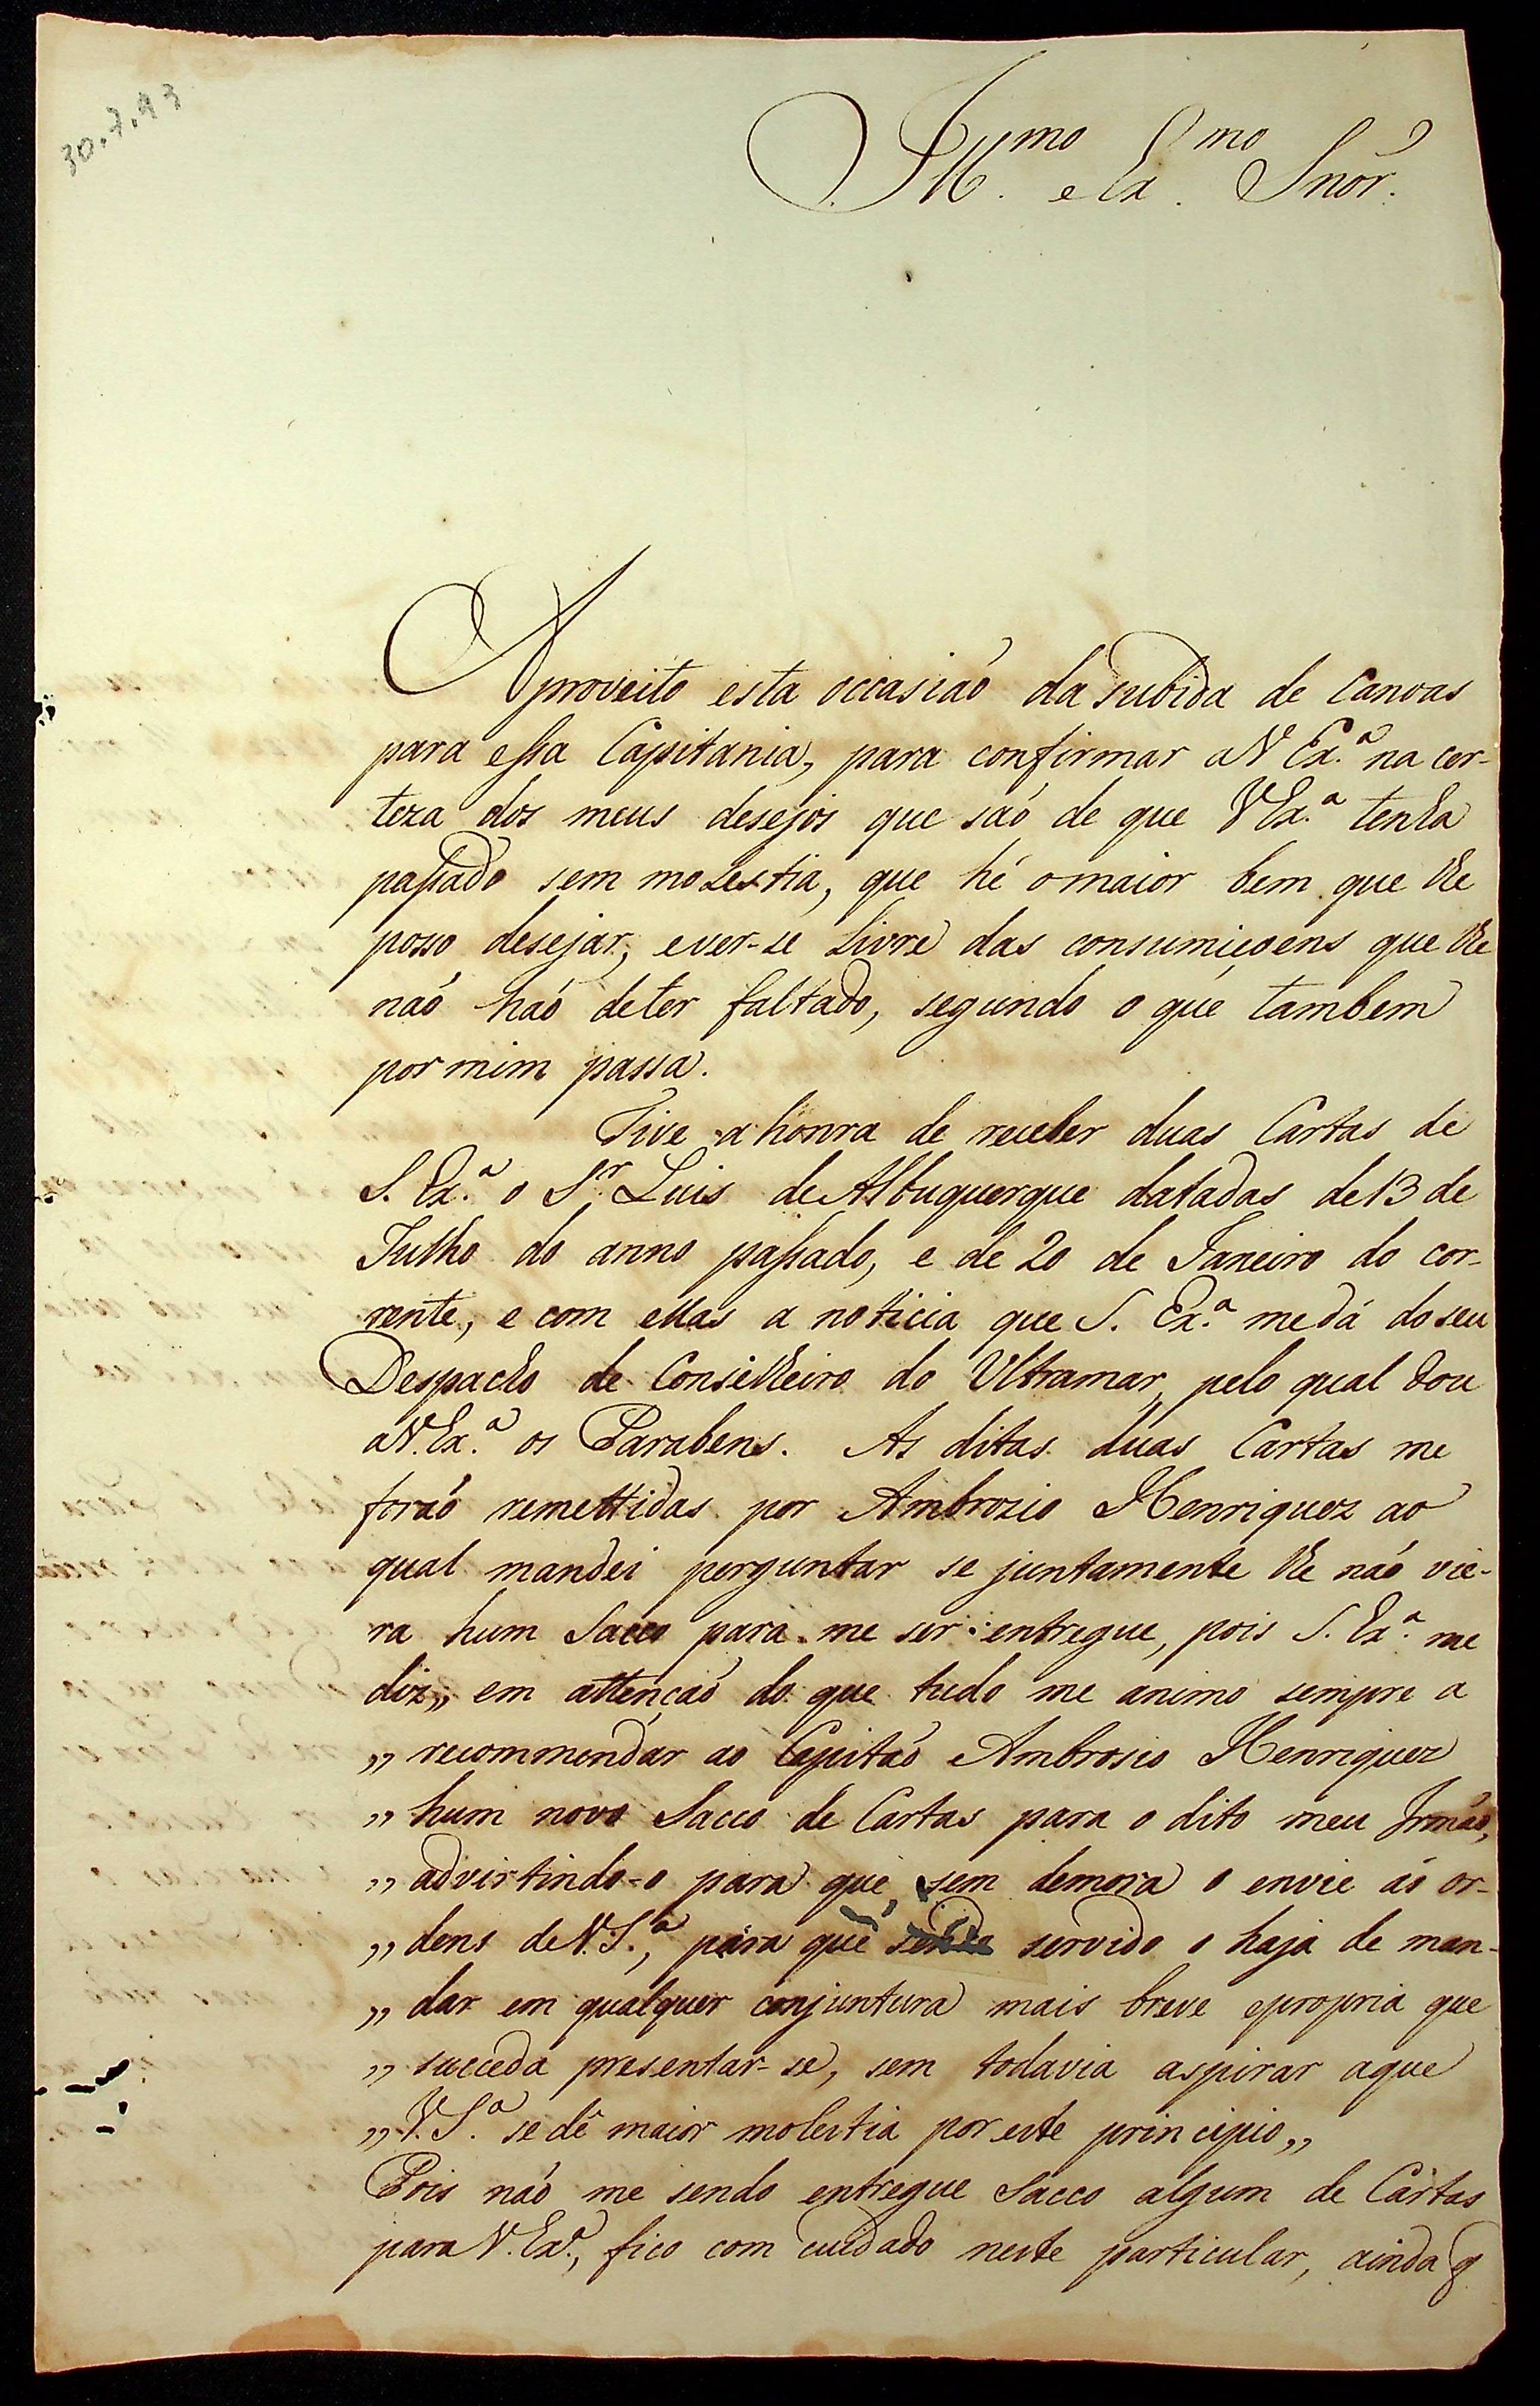 30.7.93
Ill.mo e Ex.mo Snõr.
Aproveito esta occasiaõ da subida de Canoas
para essa Capitania, para confirmar a V Ex.ª na cer-
teza dos meus desejos que saõ de que V Ex.ª tenha
passado sem molestia, que hé o maior bem que lhe
posso desejar, e ver-se livre das consumiçoens que lhe
naõ haõ de ter faltado, segundo o que tambem
por mim passa.
Tive a honra de receber duas Cartas de
S. Ex.ª o S.r Luis de Albuquerque datadas de 13 de
Julho do anno passado, e de 20 de Janeiro do cor-
rente, e com ellas a noticia que S. Ex.ª me dá do seu
Despacho de Conselheiro do Ultramar, pelo qual dou
a V. Ex.ª os Parabens. As ditas duas Cartas me
foraõ remettidas por Ambrozio Henriquez ao
qual mandei perguntar se juntamente lhe naõ vie-
ra hum Sacco para me ser entregue, pois S. Ex.ª me
diz,, em attençaõ do que tudo me animo sempre a
,, recommendar ao Capitaõ Ambrosio Henriquez
,, hum novo Sacco de Cartas para o dito meu Irmaõ,
,, advirtindo-o para que sem demora o envie ás or-
,, dens de V. S.ª, para que sendo servido o haja de man-
,, dar em qualquer conjuntura mais breve e propria que
,, succeda presentar-se, sem todavia aspirar a que
,, V. S.ª se dê maior molestia por este principio,,
Pois naõ me sendo entregue Sacco algum de Cartas
para V. Ex.ª, fico com cuidado neste particular, ainda q